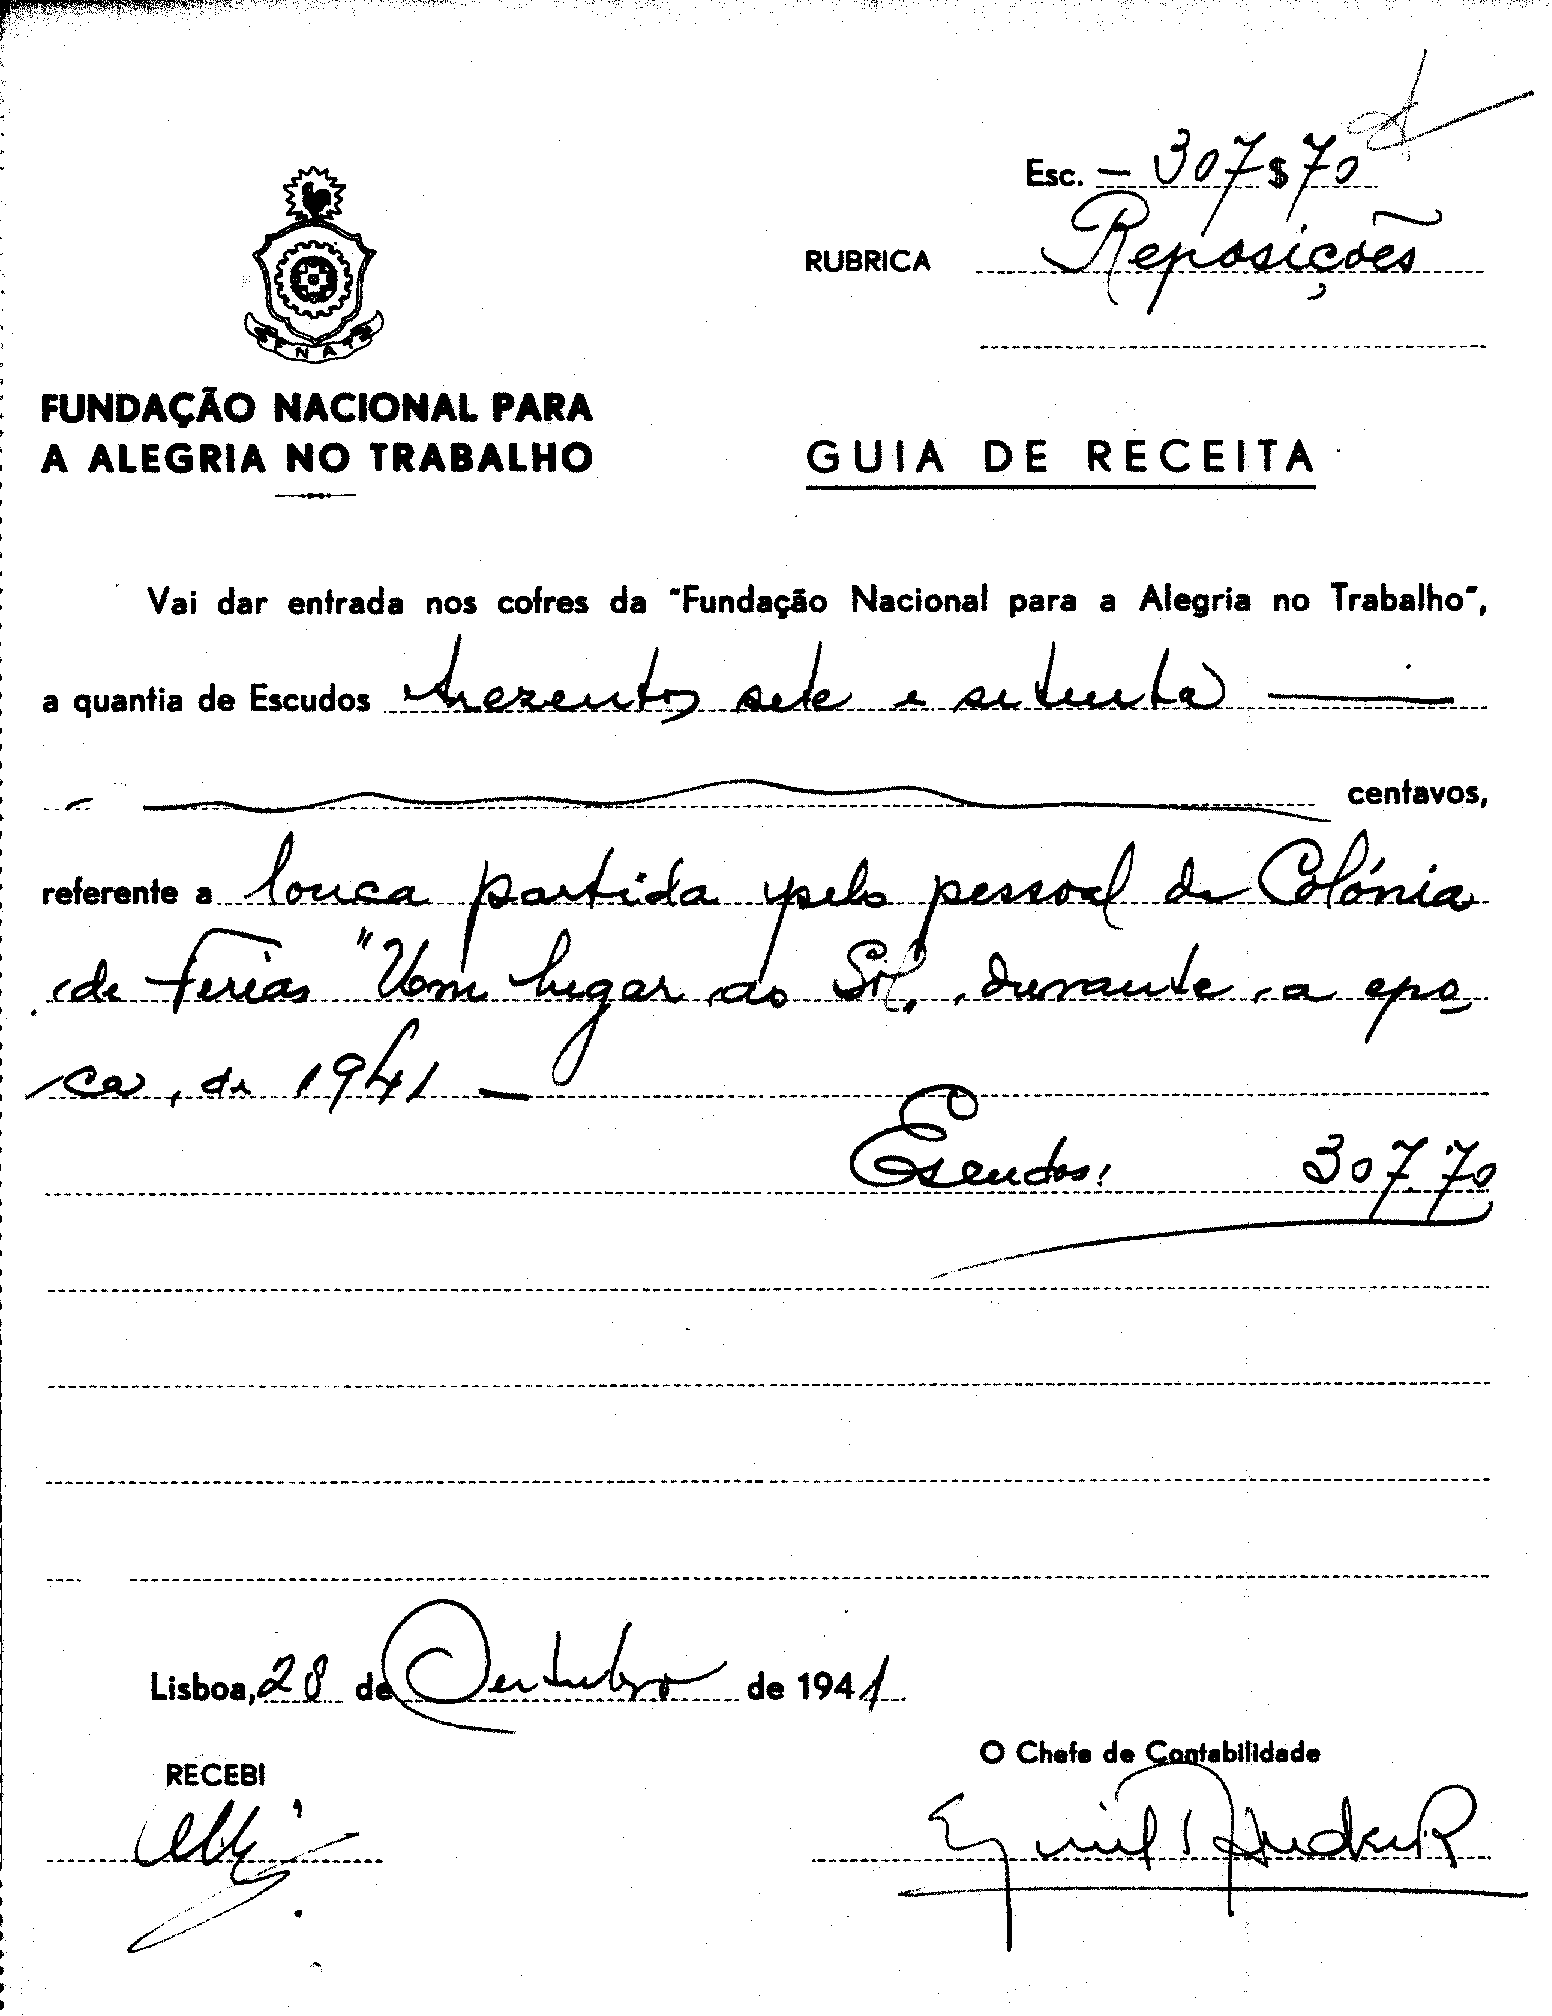 Esc. — 307$70
RUBRICA Reposições
FNAT
FUNDAÇÃO NACIONAL PARA
A ALEGRIA NO TRABALHO
GUIA DE RECEITA
Vai dar entrada nos cofres da "Fundação Nacional para a Alegria no Trabalho",
a quantia de Escudos trezentos sete e setenta
centavos,
referente a louca partida pelo pessoal da Colónia
de Ferias "Um lugar ao Sol", durante a epo
ca, de 1941 —
Escudos: 307.70
Lisboa, 28 de Outubro de 1941
RECEBI
O Chefe de Contabilidade